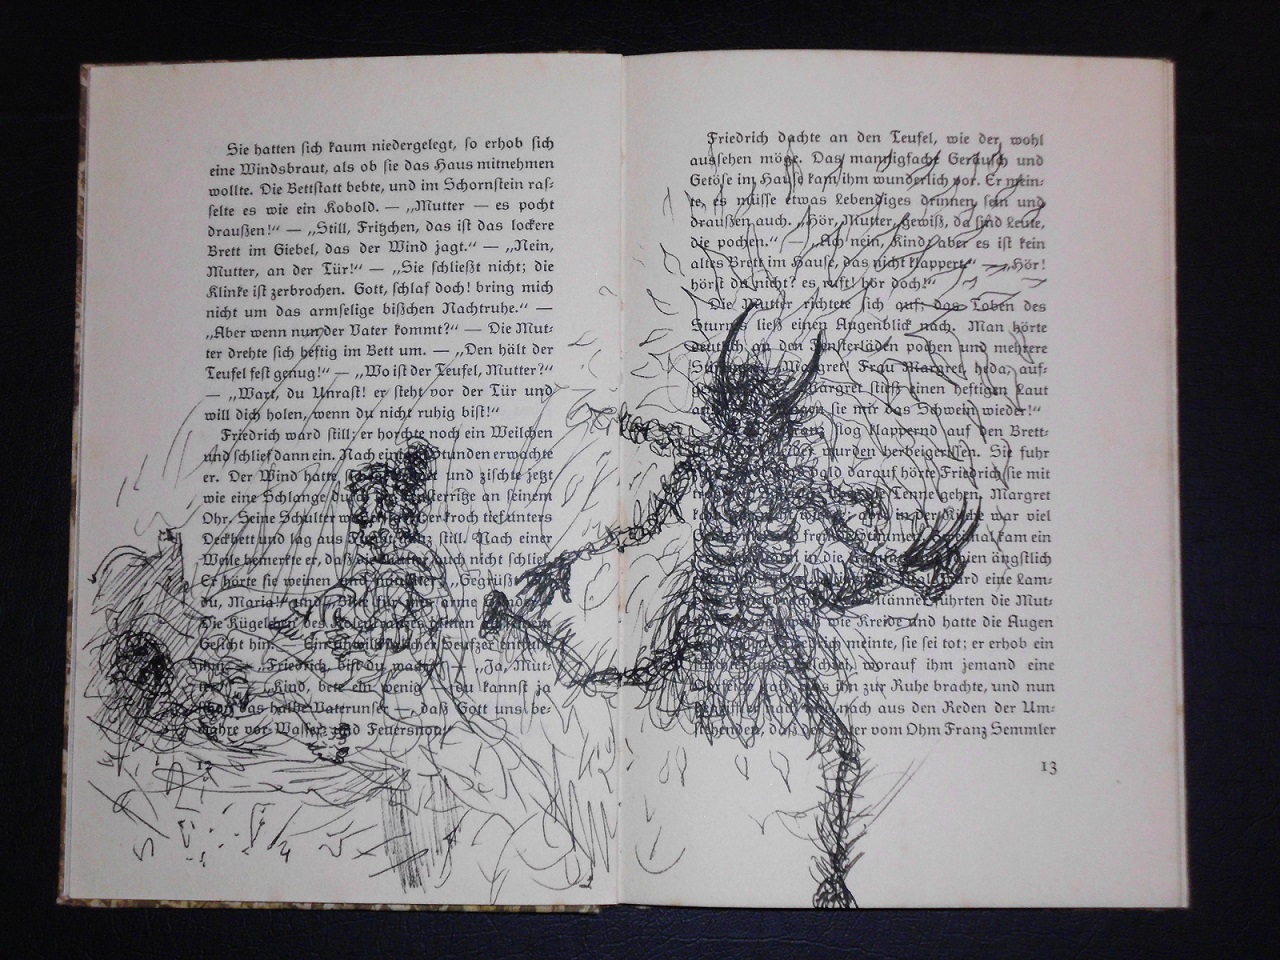 Sie hatten sich kaum niedergelegt, so erhob sich
eine Windsbraut, als ob sie das Haus mitnehmen
wollte. Die Bettstatt bebte, und im Schornstein ras-
selte es wie ein Kobold. — „Mutter — es pocht
draußen!“ — „Still, Fritzchen, das ist das lockere
Brett im Giebel, das der Wind jagt.“ — „Nein,
Mutter, an der Tür!“ — „Sie schließt nicht; die
Klinke ist zerbrochen. Gott, schlaf doch! bring mich
nicht um das armselige bißchen Nachtruhe.“ —
„Aber wenn nun der Vater kommt?“ — Die Mut-
ter drehte sich heftig im Bett um. — „Den hält der
Teufel fest genug!“ — „Wo ist der Teufel, Mutter?“
— „Wart, du Unrast! er steht vor der Tür und
will dich holen, wenn du nicht ruhig bist!“
Friedrich ward still; er horchte noch ein Weilchen
und schlief dann ein. Nach einigen Stunden erwachte
er. Der Wind hatte sich und zischte jetzt
wie eine Schlange durch die Fensterritze an seinem
Ohr. Seine Schulter war er kroch tief unters
Deckbett und lag aus Furcht ganz still. Nach einer
Weile bemerkte er, daß die Mutter auch nicht schlief.
Er hörte sie weinen und „Gegrüßt
du, Maria!“ und „Bitt für uns arme
Die Kügelchen des Rosenkranzes glitten
Gesicht hin. — Ein unwillkürlicher Seufzer entfuhr
ihm. — „Friedrich, bist du wach?“ — „Ja, Mut-
ter.“ — „Kind, bete ein wenig — du kannst ja
schon das halbe Vaterunser —, daß Gott uns be-
wahre vor Wasser- und Feuersnot.“
12
Friedrich dachte an den Teufel, wie der wohl
aussehen möge. Das mannigfache Geräusch und
Getöse im Hause kam ihm wunderlich vor. Er mein-
te, es müsse etwas Lebendiges drinnen sein und
draußen auch. „Hör, Mutter, gewiß, da sind Leute,
die pochen.“ — „Ach nein, Kind, aber es ist kein
altes Brett im Hause, das nicht klappert.“ — „Hör!
hörst du nicht? es ruft! hör doch!“
Die Mutter richtete sich auf; das Toben des
Sturms ließ einen Augenblick nach. Man hörte
deutlich an den Fensterläden pochen und mehrere
Stimmen: „Margret! Frau Margret, heda, auf-
Margret stieß einen heftigen Laut
sie mir das Schwein wieder!“
flog klappernd auf den Brett-
wurden herbeigerissen. Sie fuhr
bald darauf hörte Friedrich sie mit
Tenne gehen. Margret
in der Küche war viel
fremde Stimmen. Zweimal kam ein
in die ängstlich
ward eine Lam-
Männer führten die Mut-
wie Kreide und hatte die Augen
meinte, sie sei tot; er erhob ein
worauf ihm jemand eine
Ohrfeige gab, was ihn zur Ruhe brachte, und nun
begriff er nach und nach aus den Reden der Um-
stehenden, daß der Vater vom Ohm Franz Semmler
13